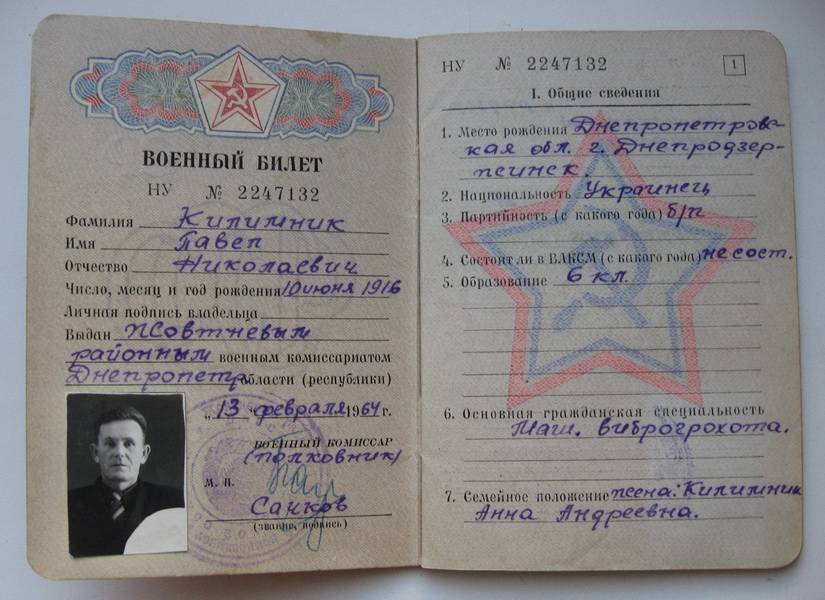 ВОЕННЫЙ БИЛЕТ
НУ № 2247132
Фамилия Килимник
Имя Павел
Отчество Николаевич
Число, месяц и год рождения 10 июня 1916
Личная подпись владельца
Выдан
районным военным комиссариатом
Днепропетр области (республики)
„13 февраля 1964 г.
ВОЕННЫЙ КОМИССАР
(полковник)
М. П.
(звание, подпись)
НУ № 2247132
1
1. Общие сведения
1. Место рождения Днепропетровс-
кая обл. г. Днепродзер-
жинск
2. Национальность Украинец
3. Партийность (с какого года) б/п
4. Состоит ли в ВЛКСМ (с какого года) не сост.
5. Образование 6 кл.
6. Основная гражданская специальность
Маш. виброгрохота.
7. Семейное положение жена: Килимник
Анна Андреевна.